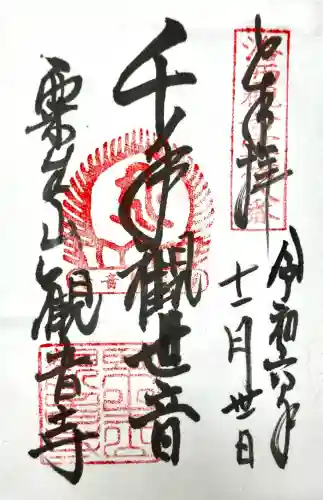 奉拝
令和六年
十一月卅日
千手観世音
粟生山観音寺